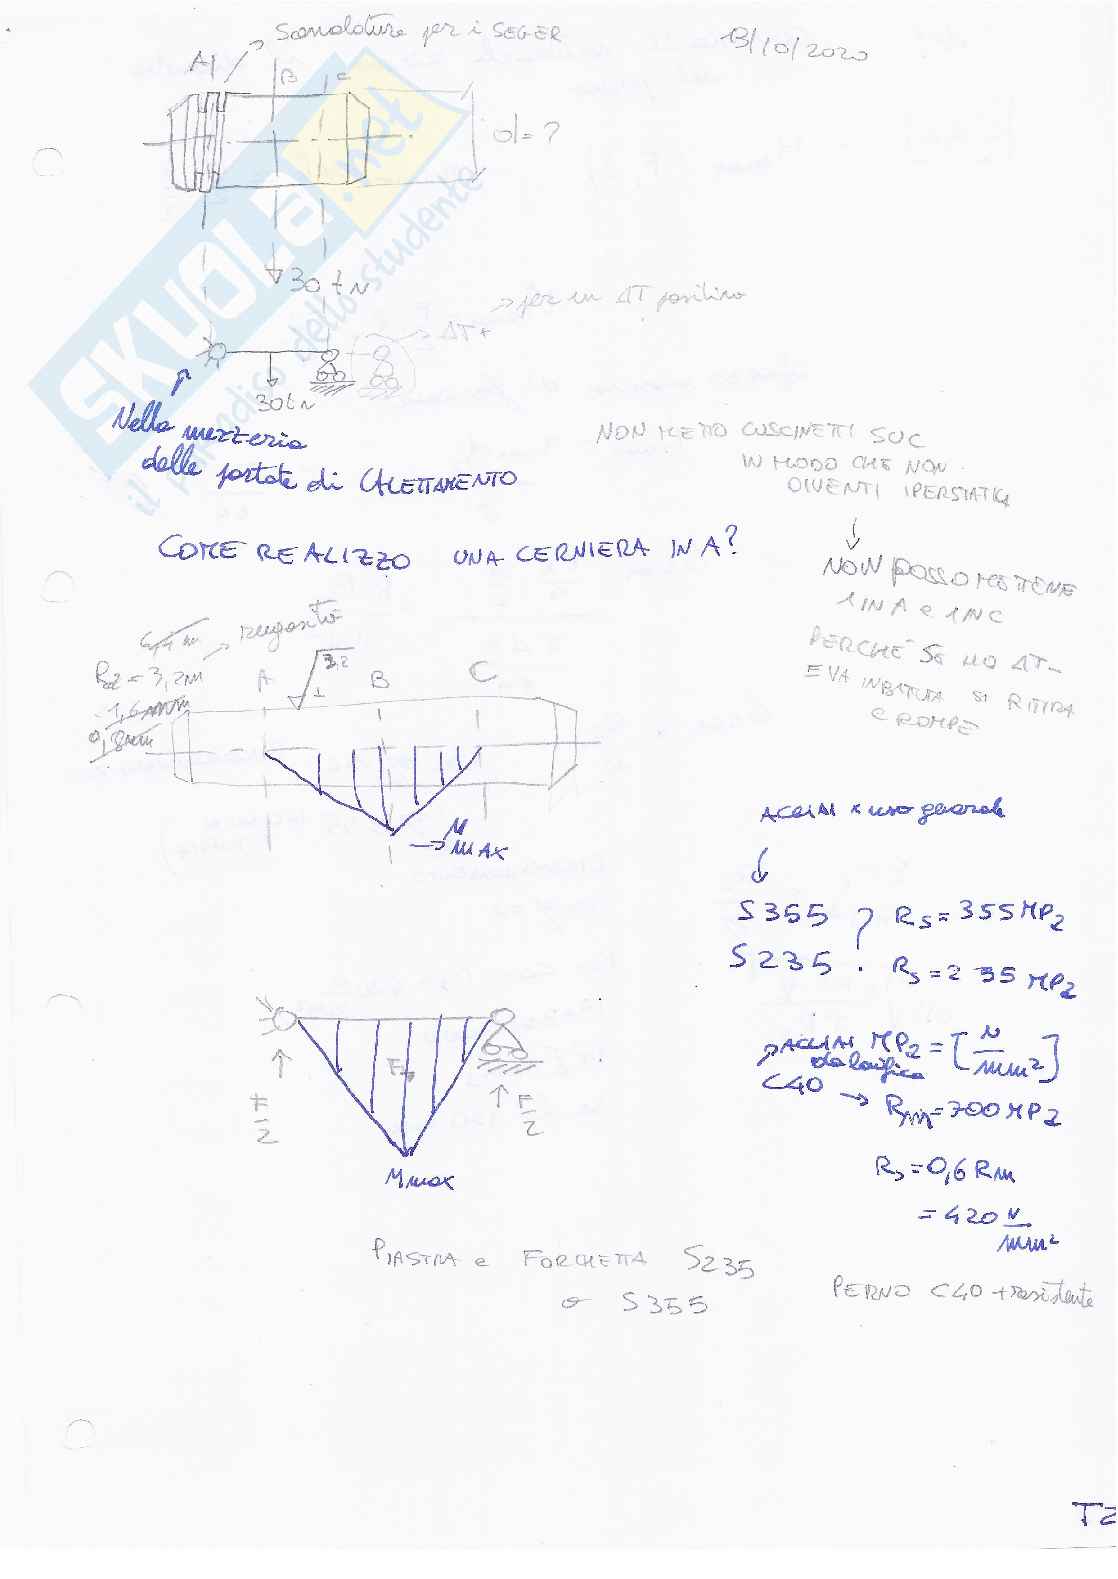 Scanalature per i SEGER
13/10/2020
A
B
C
d=?
30 t N
per un ΔT positivo
ΔT+
30 t N
Nella mezzeria
delle portate di CALETTAMENTO
NON METTO CUSCINETTI SUC
IN MODO CHE NON
DIVENTI IPERSTATICA
COME REALIZZO UNA CERNIERA IN A?
NON POSSO METTERNE
1 IN A e 1 IN C
PERCHÉ SE HO ΔT-
E VA IN BATTUTA SI RITIRA
E ROMPE
rugosità
3,2
A
B
C
1,6
0,8
M
MAX
ACCIAI x uso generale
S355
Rs = 355 MPa
S235
Rs = 235 MPa
ACCIAI
da bonifica
MPa = [N/mm²]
C40 → Rm = 700 MPa
Rs = 0,6 Rm
= 420 N/mm²
F
F/2
F/2
M max
PIASTRA e FORCHETTA S235
o S355
PERNO C40 + resistente